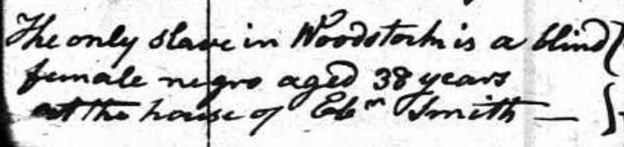 The only slave in Woodstock is a blind
female negro aged 38 years
at the house of Ebn Smith —